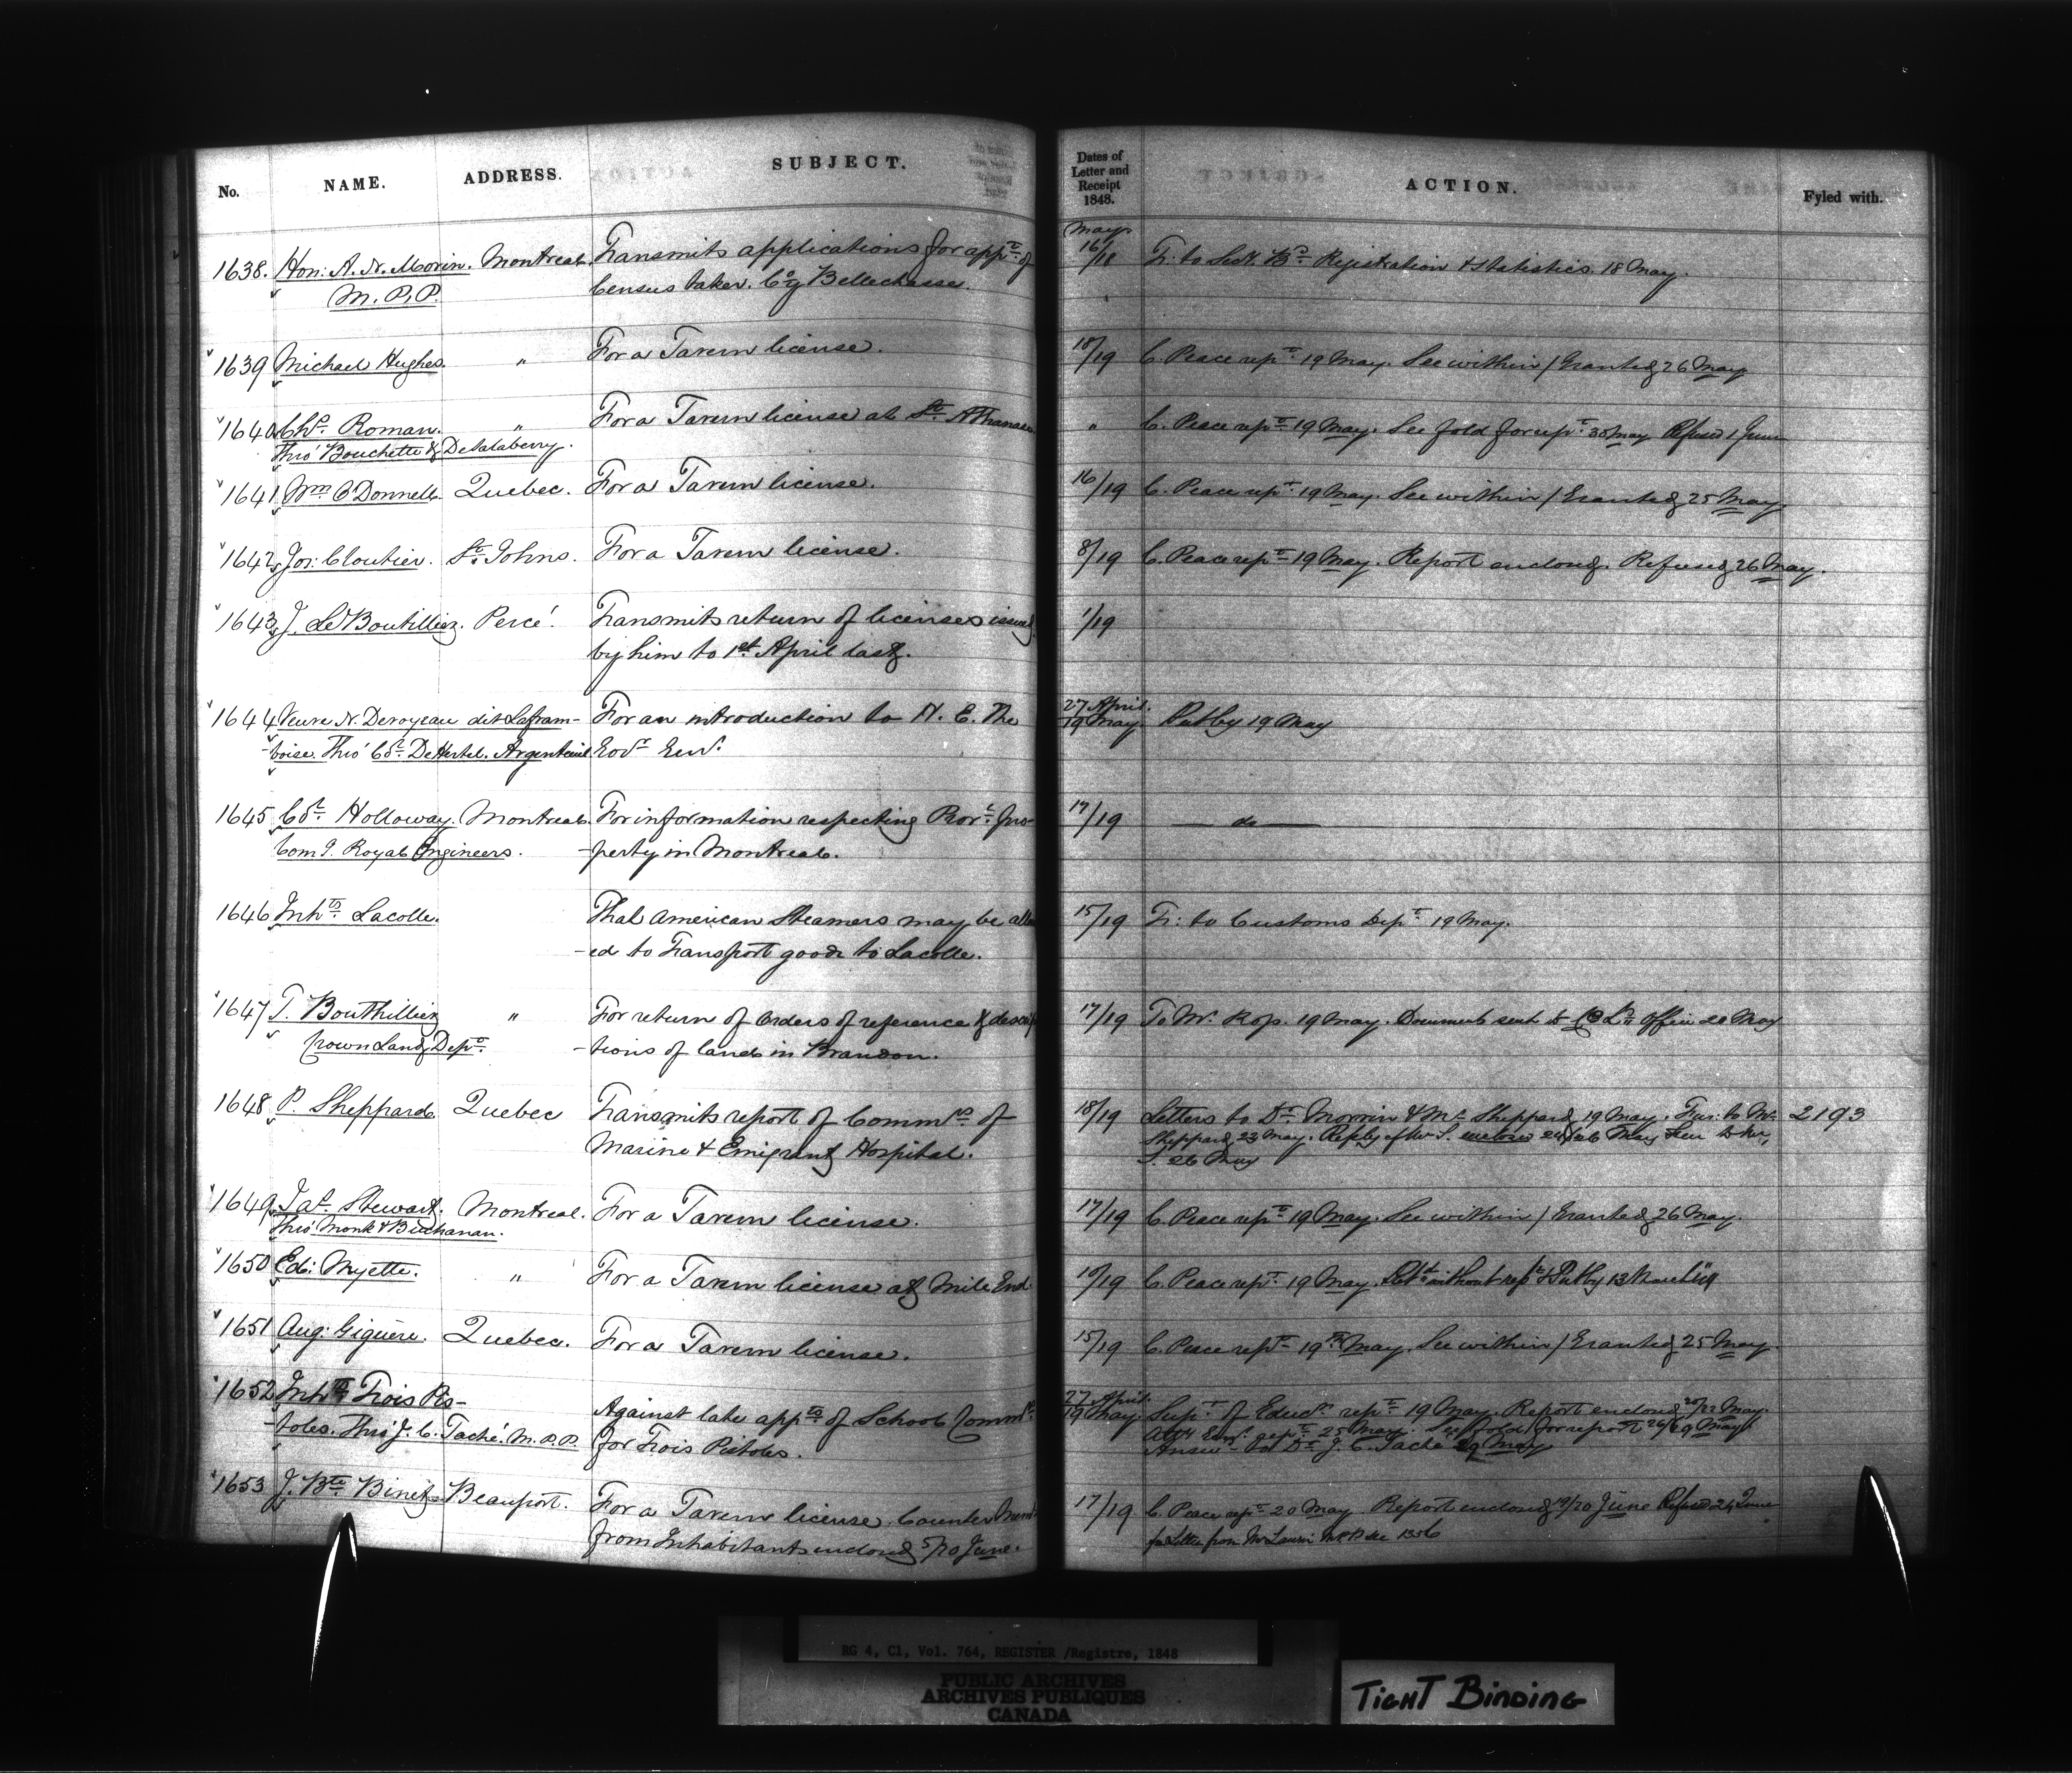 No. NAME. ADDRESS. SUBJECT. Dates of Letter and Receipt 1848. ACTION. Fyled with.
May
1638. Hon: A. N. Morin. Montreal. Transmits applications for appt. of 16/18 Tr: to Sect. Bd. Registration & Statistics. 18 May.
M. P. P. Census taker. Coy Bellechasse.
1639 Michael Hughes. " For a Tavern license. 18/19 C. Peace rept. 19 May. See within / Granted 26 May
1640 Chs. Roman. " For a Tavern license at St. Athanase " C. Peace rept. 19 May. See fold for rept. 30 May Refused 1 June
Thro' Bouchette & DeSalaberry.
1641 Wm O'Donnell. Quebec. For a Tavern license. 16/19 C. Peace rept. 19 May. See within / Granted 25 May
1642 Jos: Cloutier. St. Johns. For a Tavern license. 8/19 C. Peace rept. 19 May. Report enclosed. Refused 26 May.
1643 J. LeBoutillier. Percé. Transmits return of licenses issued 1/19
by him to 1st April last.
1644 Veuve N. Deroyeau dit Lafram- For an introduction to H. E. The 27 April. 19 May. Put by 19 May
-boise. Thro' Col. DeHertel. Argenteuil. Govr. Genl.
1645 Col. Holloway. Montreal. For information respecting Prov. pro- 17/19 do
Comg. Royal Engineers. -perty in Montreal.
1646 Inhts. Lacolle. That American Steamers may be allow 15/19 Tr: to Customs Dept. 19 May.
-ed to Transport goods to Lacolle.
1647 T. Bouthillier " For return of Orders of reference & descrip 17/19 To Mr. 19 May. Documents sent to C Ld. Office 20 May
Crown Land Dept. -tions of land in Brandon.
1648 P. Sheppard. Quebec Transmits report of Commrs. of 18/19 Letters to Dr. Morrin & Mr. Sheppard 19 May. Fur: to Mr. 2193
Marine & Emigrant Hospital. Sheppard 23 May. Reply of Mr S. enclosed 26 May to Mr.
S. 26 May
1649 Jas. Stewart. Montreal. For a Tavern license. 17/19 C. Peace rept. 19 May. See within / Granted 26 May.
Thro' Monk & Buchanan.
1650 Ed: Myette. " For a Tavern license at Mile End 19/19 C. Peace rept. 19 May. without rept. & Put by 13 March
1651 Aug: Giguère. Quebec. For a Tavern license. 15/19 C. Peace rept. 19th May. See within / Granted 25 May.
1652 Inhts Trois Pis- Against late appts. of School Commrs. 27 April 19 May. Supt. of Educn. rept. 19 May. Report enclosed 20/22 May.
-toles. Thro' J. C. Taché. M.P.P. for Trois Pistoles. Atty Genl. rept. 25 May. See fold for report 26/29 May
Answr. to Dr. J. C. Taché 29 May
1653 J. Bte. Binet. Beauport. For a Tavern license. Counter Meml. 17/19 C. Peace rept. 20 May. Report enclosed 19/20 June Refused 24 June
from Inhabitants enclosed 5/20 June. for Letter from Mr Laurin MPP see 1356
RG 4, C1, Vol. 764, REGISTER /Registre, 1848
PUBLIC ARCHIVES
ARCHIVES PUBLIQUES
CANADA
TIGHT BINDING